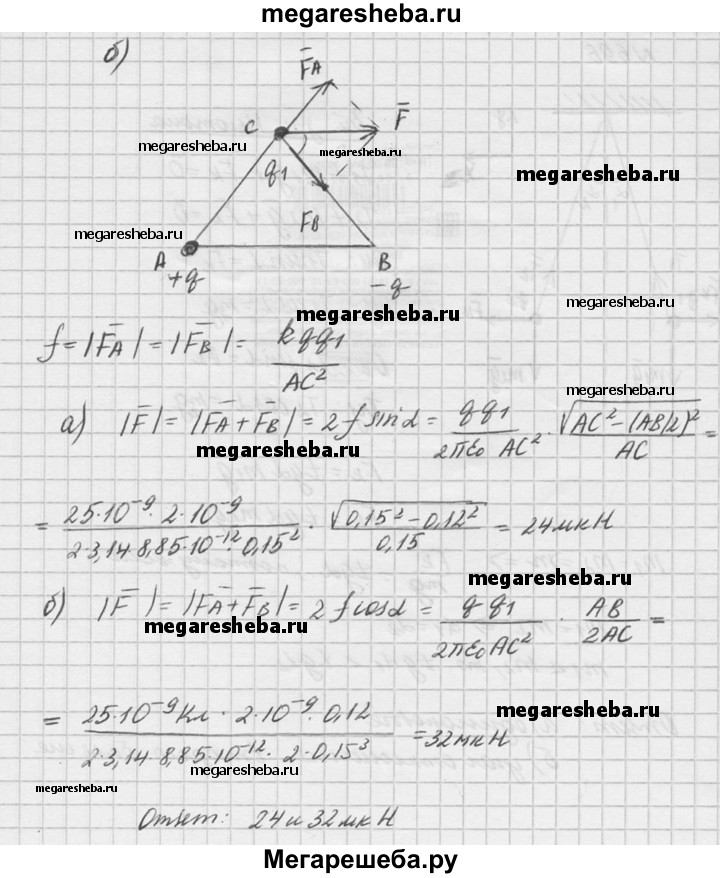 megaresheba.ru
б)
F̄A
C
F̄
megaresheba.ru
megaresheba.ru
q1
megaresheba.ru
megaresheba.ru
FB
A
B
+q
-q
megaresheba.ru
megaresheba.ru
f = |F̄A| = |F̄B| = kqq1 / AC²
megaresheba.ru
а) |F̄| = |F̄A + F̄B| = 2f sinα = qq1 / 2πε0 AC² · √(AC² - (AB/2)²) / AC =
megaresheba.ru
= 25·10⁻⁹·2·10⁻⁹ / 2·3,14·8,85·10⁻¹²·0,15² · √(0,15² - 0,12²) / 0,15 = 24мкН
megaresheba.ru
б) |F̄| = |F̄A + F̄B| = 2f cosα = qq1 / 2πε0 AC² · AB / 2AC =
megaresheba.ru
megaresheba.ru
= 25·10⁻⁹Кл · 2·10⁻⁹·0,12 / 2·3,14·8,85·10⁻¹²·2·0,15³ = 32мкН
megaresheba.ru
megaresheba.ru
Ответ: 24 и 32мкН
Мегарешеба.ру